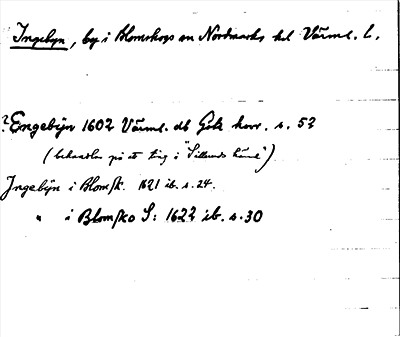 Ingebyn, by i Blomskogs sn Nordmarks hd Värml. l.
? Engebÿn 1602 Värml. db Göta hovr. s. 53
(behandlas på ett ting i "Sillerudz härad")
Jngebÿn i Blomsk. 1621 ib. s. 24.
" i Blomsko S: 1622 ib. s. 30